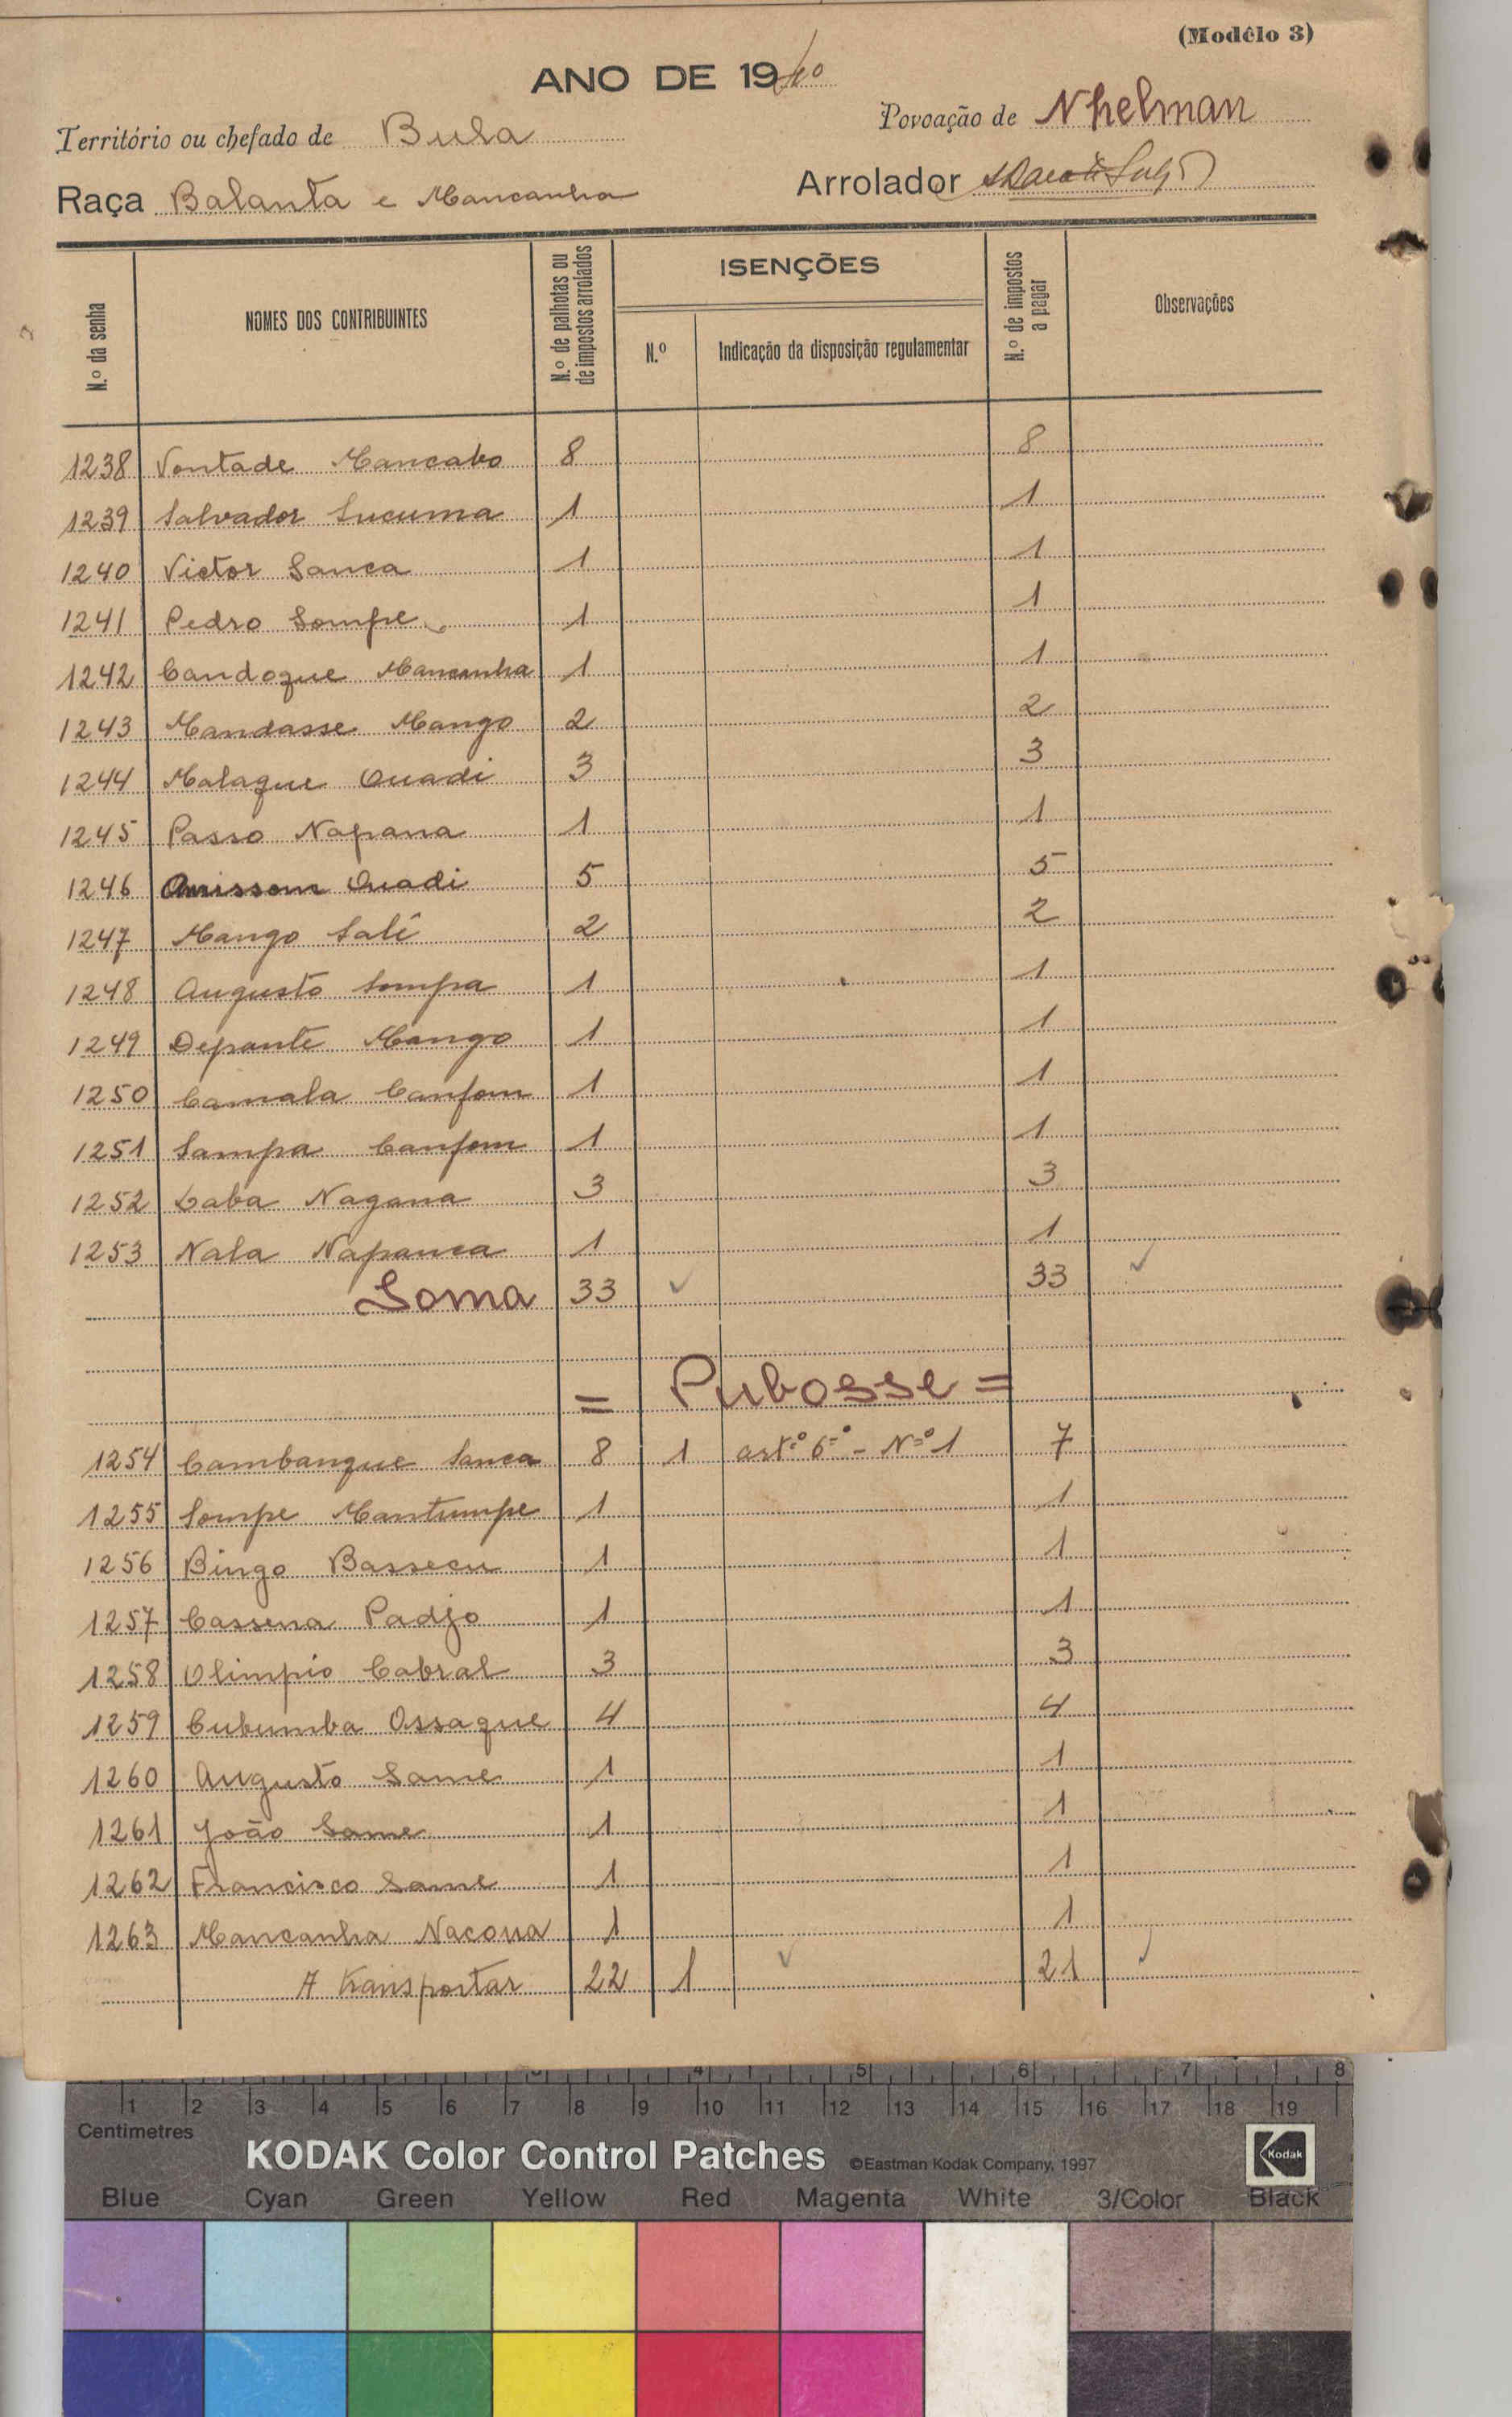 (Modêlo 3)
ANO DE 1940
Território ou chefado de Bula Povoação de Nhelman
Raça Balanta e Mancanha Arrolador
N.º da senha NOMES DOS CONTRIBUINTES N.º de palhotas ou de impostos arrolados ISENÇÕES N.º Indicação da disposição regulamentar N.º de impostos a pagar Observações
1238 Vontade Mancabo 8 8
1239 Salvador Sucuma 1 1
1240 Victor Sanca 1 1
1241 Pedro Sompe 1 1
1242 Candoque Mancanha 1 1
1243 Mandasse Mango 2 2
1244 Malaque Ouadi 3 3
1245 Passo Napana 1 1
1246 Ouadi 5 5
1247 Mango Sali 2 2
1248 Augusto Sompa 1 1
1249 Depante Mango 1 1
1250 Camala Canfom 1 1
1251 Sampa Canfom 1 1
1252 Laba Nagana 3 3
1253 Nala Napanca 1 1
Soma 33 ✓ 33 ✓
= Pubosse =
1254 Cambanque Sanca 8 1 artº 6º - Nº 1 7
1255 Sompe Mantumpe 1 1
1256 Bingo Bassecu 1 1
1257 Cassena Padjo 1 1
1258 Olimpio Cabral 3 3
1259 Cubumba Ossaque 4 4
1260 Augusto Same 1 1
1261 João Same 1 1
1262 Francisco Same 1 1
1263 Mancanha Nacona 1 1
A transportar 22 1 ✓ 21
4 5 6 7 8
1 2 3 4 5 6 7 8 9 10 11 12 13 14 15 16 17 18 19
Centimetres
KODAK Color Control Patches ©Eastman Kodak Company, 1997 Kodak
Blue Cyan Green Yellow Red Magenta White 3/Color Black